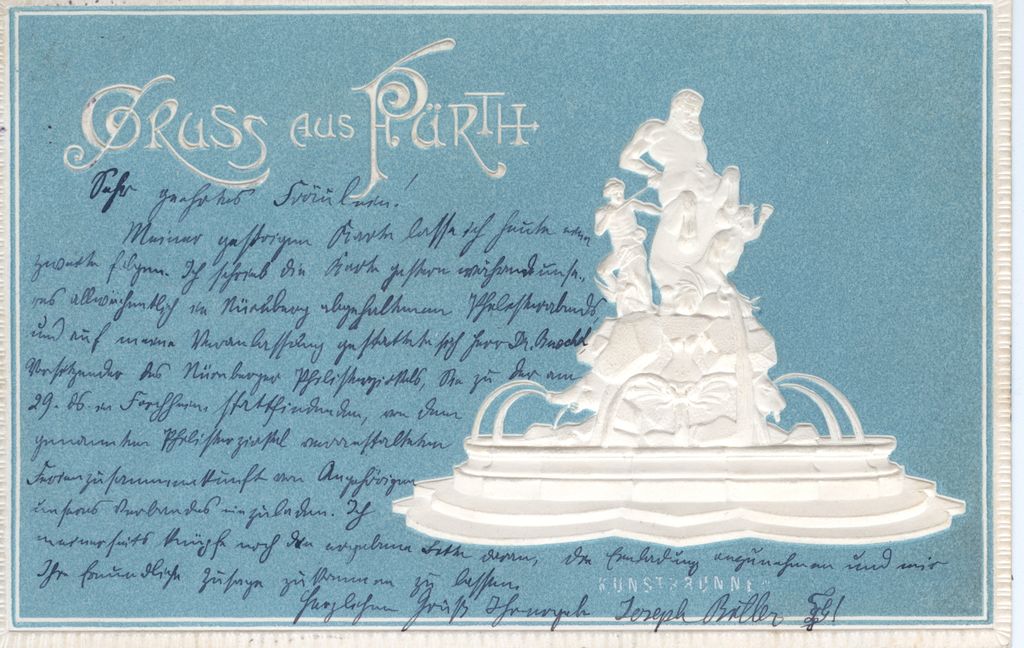 Gruss aus Fürth
Sehr geehrtes Fräulein!
Meiner gestrigen Karte lasse ich heute eine
zweite folgen. Ich schrieb die Karte gestern während unse-
res allwöchentlich in Nürnberg abgehaltenen Philisterabends,
und auf meine Veranlassung gestattete sich Herr Dr.
Vorsitzender des Nürnberger Philisterzirkels, Sie zu der am
29. ds in Forchheim stattfindenden, von dem
genannten Philisterzirkel veranstalteten
Ferienzusammenkunft von Angehörigen
unseres Verbandes einzuladen. Ich
meinerseits knüpfe noch die ergebene Bitte daran, die Einladung anzunehmen und mir
Ihre freundliche Zusage zukommen zu lassen.
KUNSTBRUNNEN
Herzlichen Gruß Ihr ergeb. Joseph